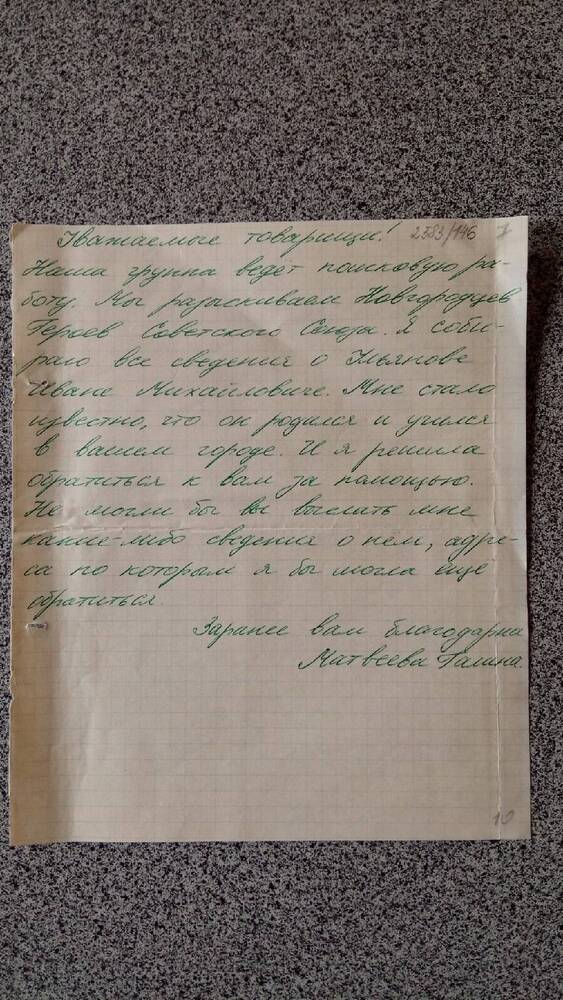 Уважаемые товарищи! 2383/146
Наша группа ведёт поисковую ра-
боту. Мы разыскиваем Новгородцев
Героев Советского Союза. Я соби-
раю все сведения о Ульянове
Иване Михайловиче. Мне стало
известно, что он родился и учился
в вашем городе. И я решила
обратиться к вам за помощью.
Не могли бы вы выслать мне
какие-либо сведения о нём, адре-
са по которым я бы могла ещё
обратиться.
Заранее вам благодарна
Матвеева Галина.
10